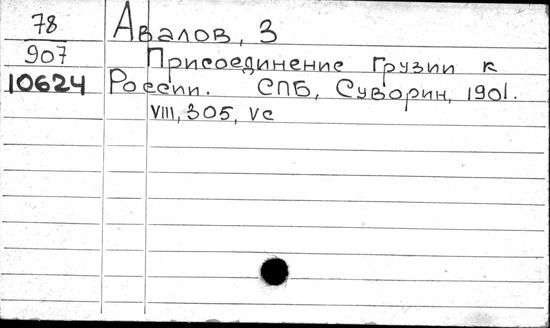 78 Авалов, З
907 Присоединение Грузии к
10624 России. СПБ, Суворин, 1901.
VIII, 305, Vс